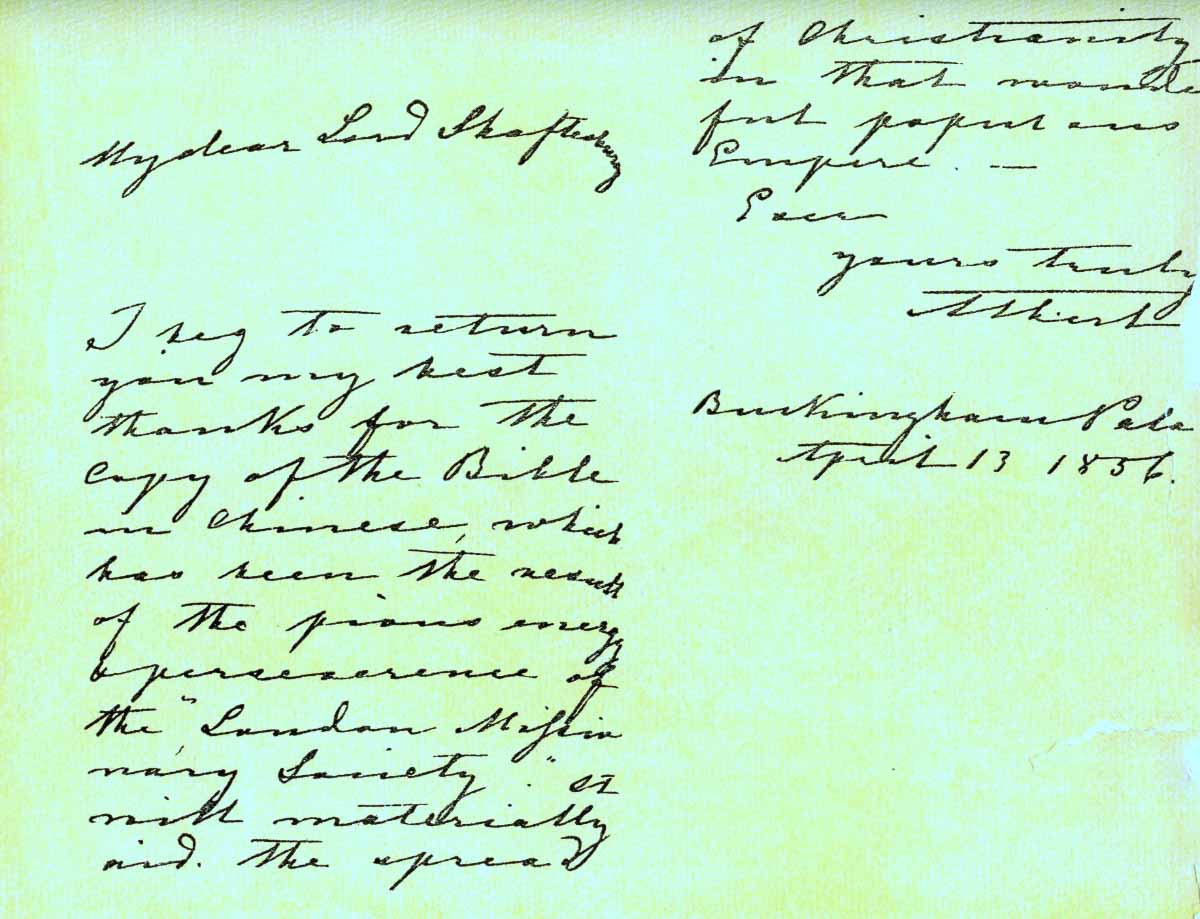 My dear Lord Shaftesbury
I beg to return
you my best
thanks for the
Copy of the Bible
in Chinese, which
has been the result
of the pious energy
& perseverence of
the "London Missio
nary Society." It
will materially
aid. the spread
of Christianity
in that wonde
ful populous
Empire. —
Ever
yours truly
Albert
Buckingham Pala
April 13 1856.